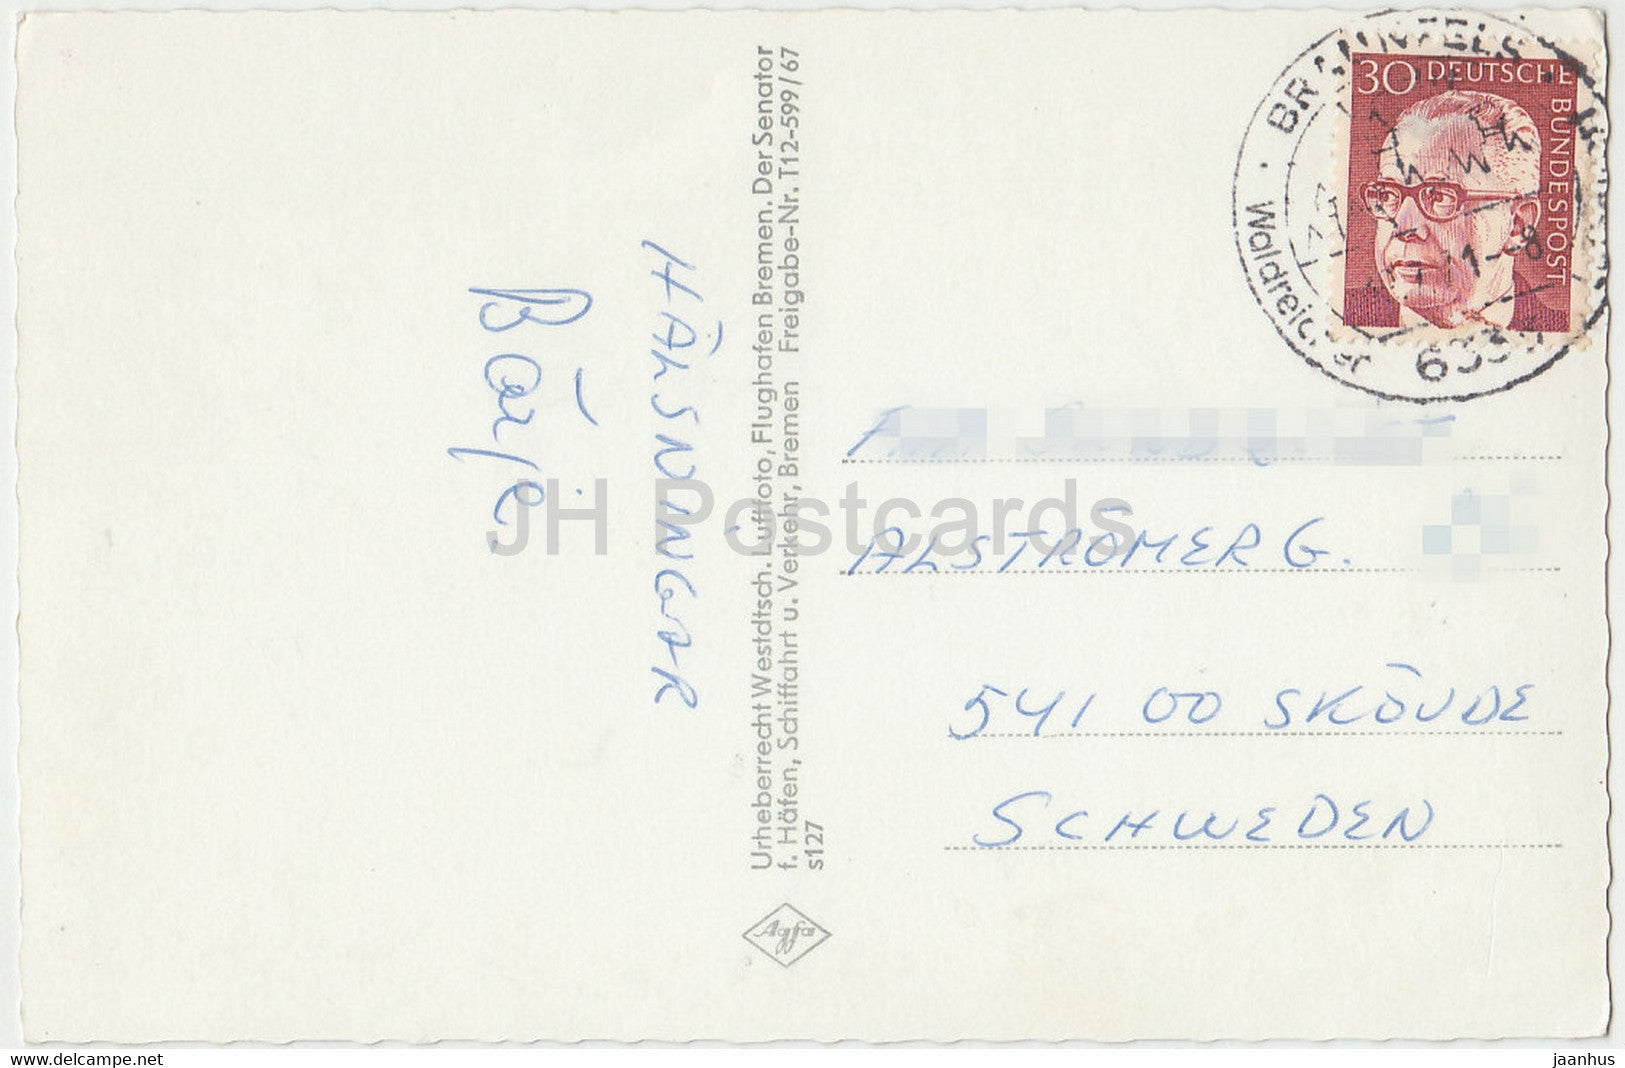 HÄLSNINGAR
Börje.
Urheberrecht Westdtsch. Luftfoto, Flughafen Bremen. Der Senator
f. Häfen, Schiffahrt u. Verkehr, Bremen Freigabe-Nr. T12-599/67
s127
Agfa
BRAUNFELS
Waldreicher
30 DEUTSCHE
BUNDESPOST
ALSTRÖMERG.
541 00 SKÖVDE
SCHWEDEN
JH Postcards
www.delcampe.net
jaanhus